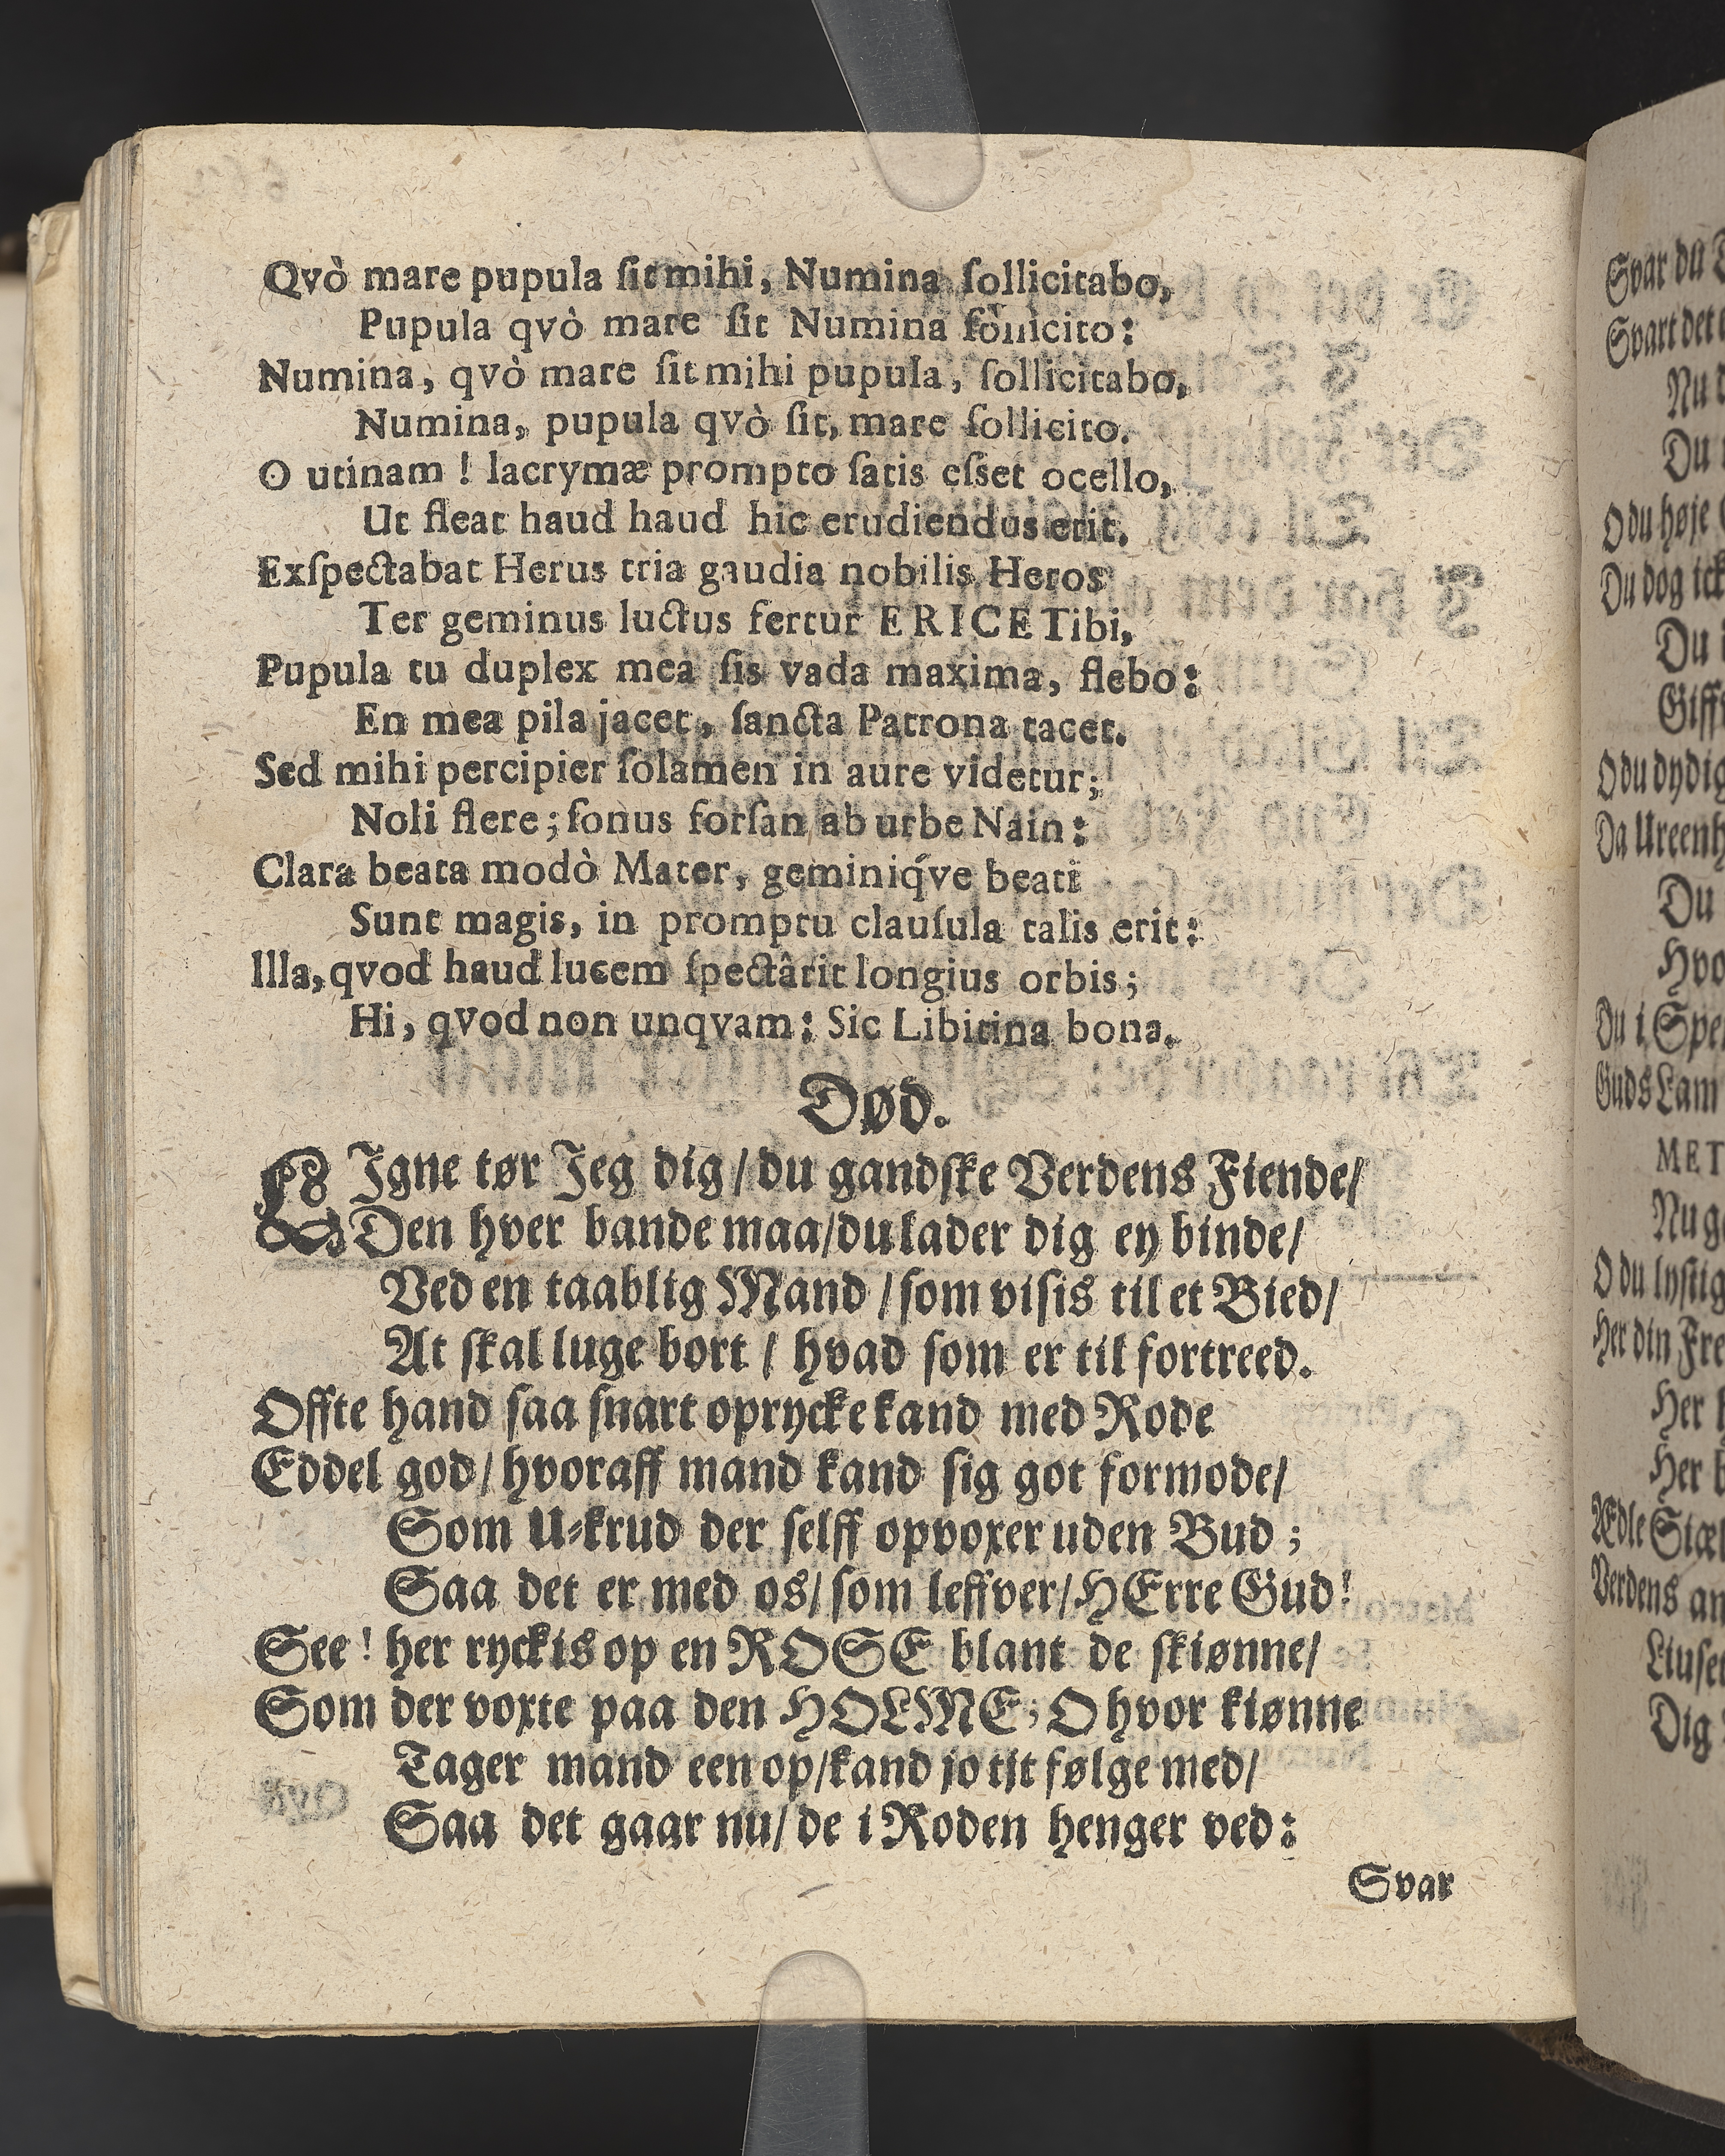 Qvò mare pupula ſit mihi, Numina ſollicitabo,
Pupula qvò mare ſit Numina ſollicito:
Numina, qvò mare ſit mihi pupula, ſollicitabo,
Numina, pupula qvò ſit, mare ſollicito.
O utinam! lacrymæ prompto ſatis eſset ocello,
Ut fleat haud haud hic erudiendus erit.
Exſpectabat Herus tria gaudia nobilis Heros
Ter geminus luctus fertur ERICE Tibi,
Pupula tu duplex mea ſis vada maxima, flebo:
En mea pila jacet, ſancta Patrona tacet.
Sed mihi percipier ſolamen in aure videtur;
Noli flere; ſonus forſan ab urbe Nain:
Clara beata modò Mater, geminiq́ve beati
Sunt magis, in promptu clauſula talis erit:
Illa, qvod haud lucem ſpectârit longius orbis;
Hi, qvod non unqvam: Sic Libitina bona.
Død.
LIgne tør Jeg dig/ du gandſke Verdens Fiende/
Den hver bande maa/ du lader dig ey binde/
Ved en taablig Mand/ ſom viſis til et Bied/
At ſkal luge bort/ hvad ſom er til fortreed.
Offte hand ſaa ſnart oprycke kand med Rode
Eddel god/ hvoraff mand kand ſig got formode/
Som U-krud der ſelff opvoxer uden Bud;
Saa det er med os/ ſom leffver/ HErre Gud!
See! her ryckis op en ROSE blant de ſkiønne/
Som der voxte paa den HOLME; O hvor kiønne
Tager mand een op/ kand jo tit følge med/
Saa det gaar nu/ de i Roden henger ved:
Svar